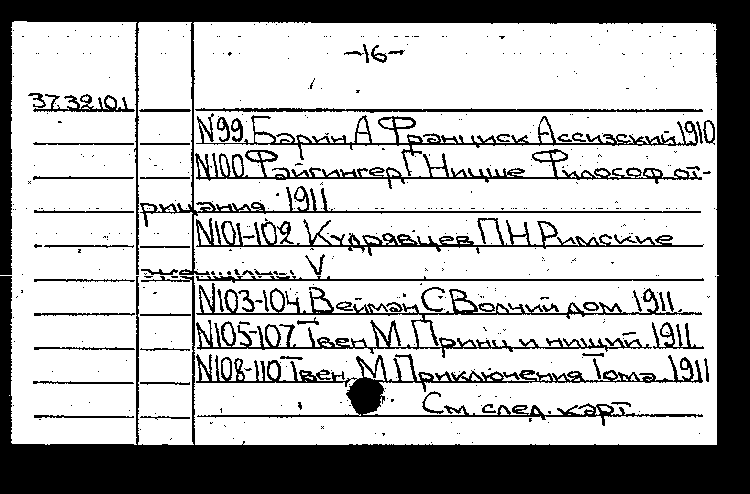 -16-
37.32.10.1
N99. Барин, А Франциск Ассизский. 1910
N100. Файгингер, Г Ницше Философ от-
рицания. 1911
N101-102. Кудрявцев, П.Н. Римские
женщины. V.
N103-104. Вейман, С. Волчий дом. 1911.
N105-107. Твен, М. Принц и нищий. 1911.
N108-110 Твен, М. Приключения Тома. 1911
См. след. карт.